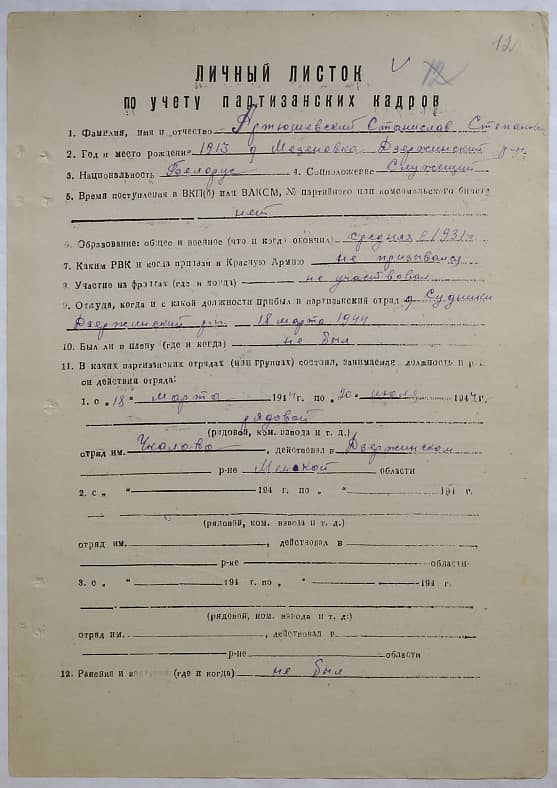 12
12
ЛИЧНЫЙ ЛИСТОК
по учету партизанских кадров
1. Фамилия, имя и отчество Артюшевский Станислав Степанович
2. Год и место рождения 1913 д Мезеновка Дзержинский р-н
3. Национальность Белорус 4. Соцположение Служащий
5. Время поступления в ВКП(б) или ВЛКСМ, № партийного или комсомольского билету
нет
6. Образование: общее и военное (что и когда окончил) среднее 1931 г
7. Каким РВК и когда призван в Красную Армию не призывался
8. Участие на фронтах (где и когда) не участвовал
9. Откуда, когда и с какой должности прибыл в партизанский отряд д Судники
Дзержинский р-н 18 марта 1944
10. Был ли в плену (где и когда) не был
11. В каких партизанских отрядах (или группах) состоял, занимаемая должность и р-н
он действия отряда:
1. с „18" марта 1944 г. по „20" июля 1944 г.
рядовой
(рядовой, ком. взвода и т. д.)
отряд им. Чкалова, действовал в Дзержинском
р-не Менской области
2. с „ " 194 г. по „ " 194 г.
(рядовой, ком. взвода и т. д.)
отряд им. , действовал в
р-не области
3. с „ " 194 г. по „ " 194 г.
(рядовой, ком. взвода и т. д.)
отряд им. , действовал в
р-не области
12. Ранения и (где и когда) не был